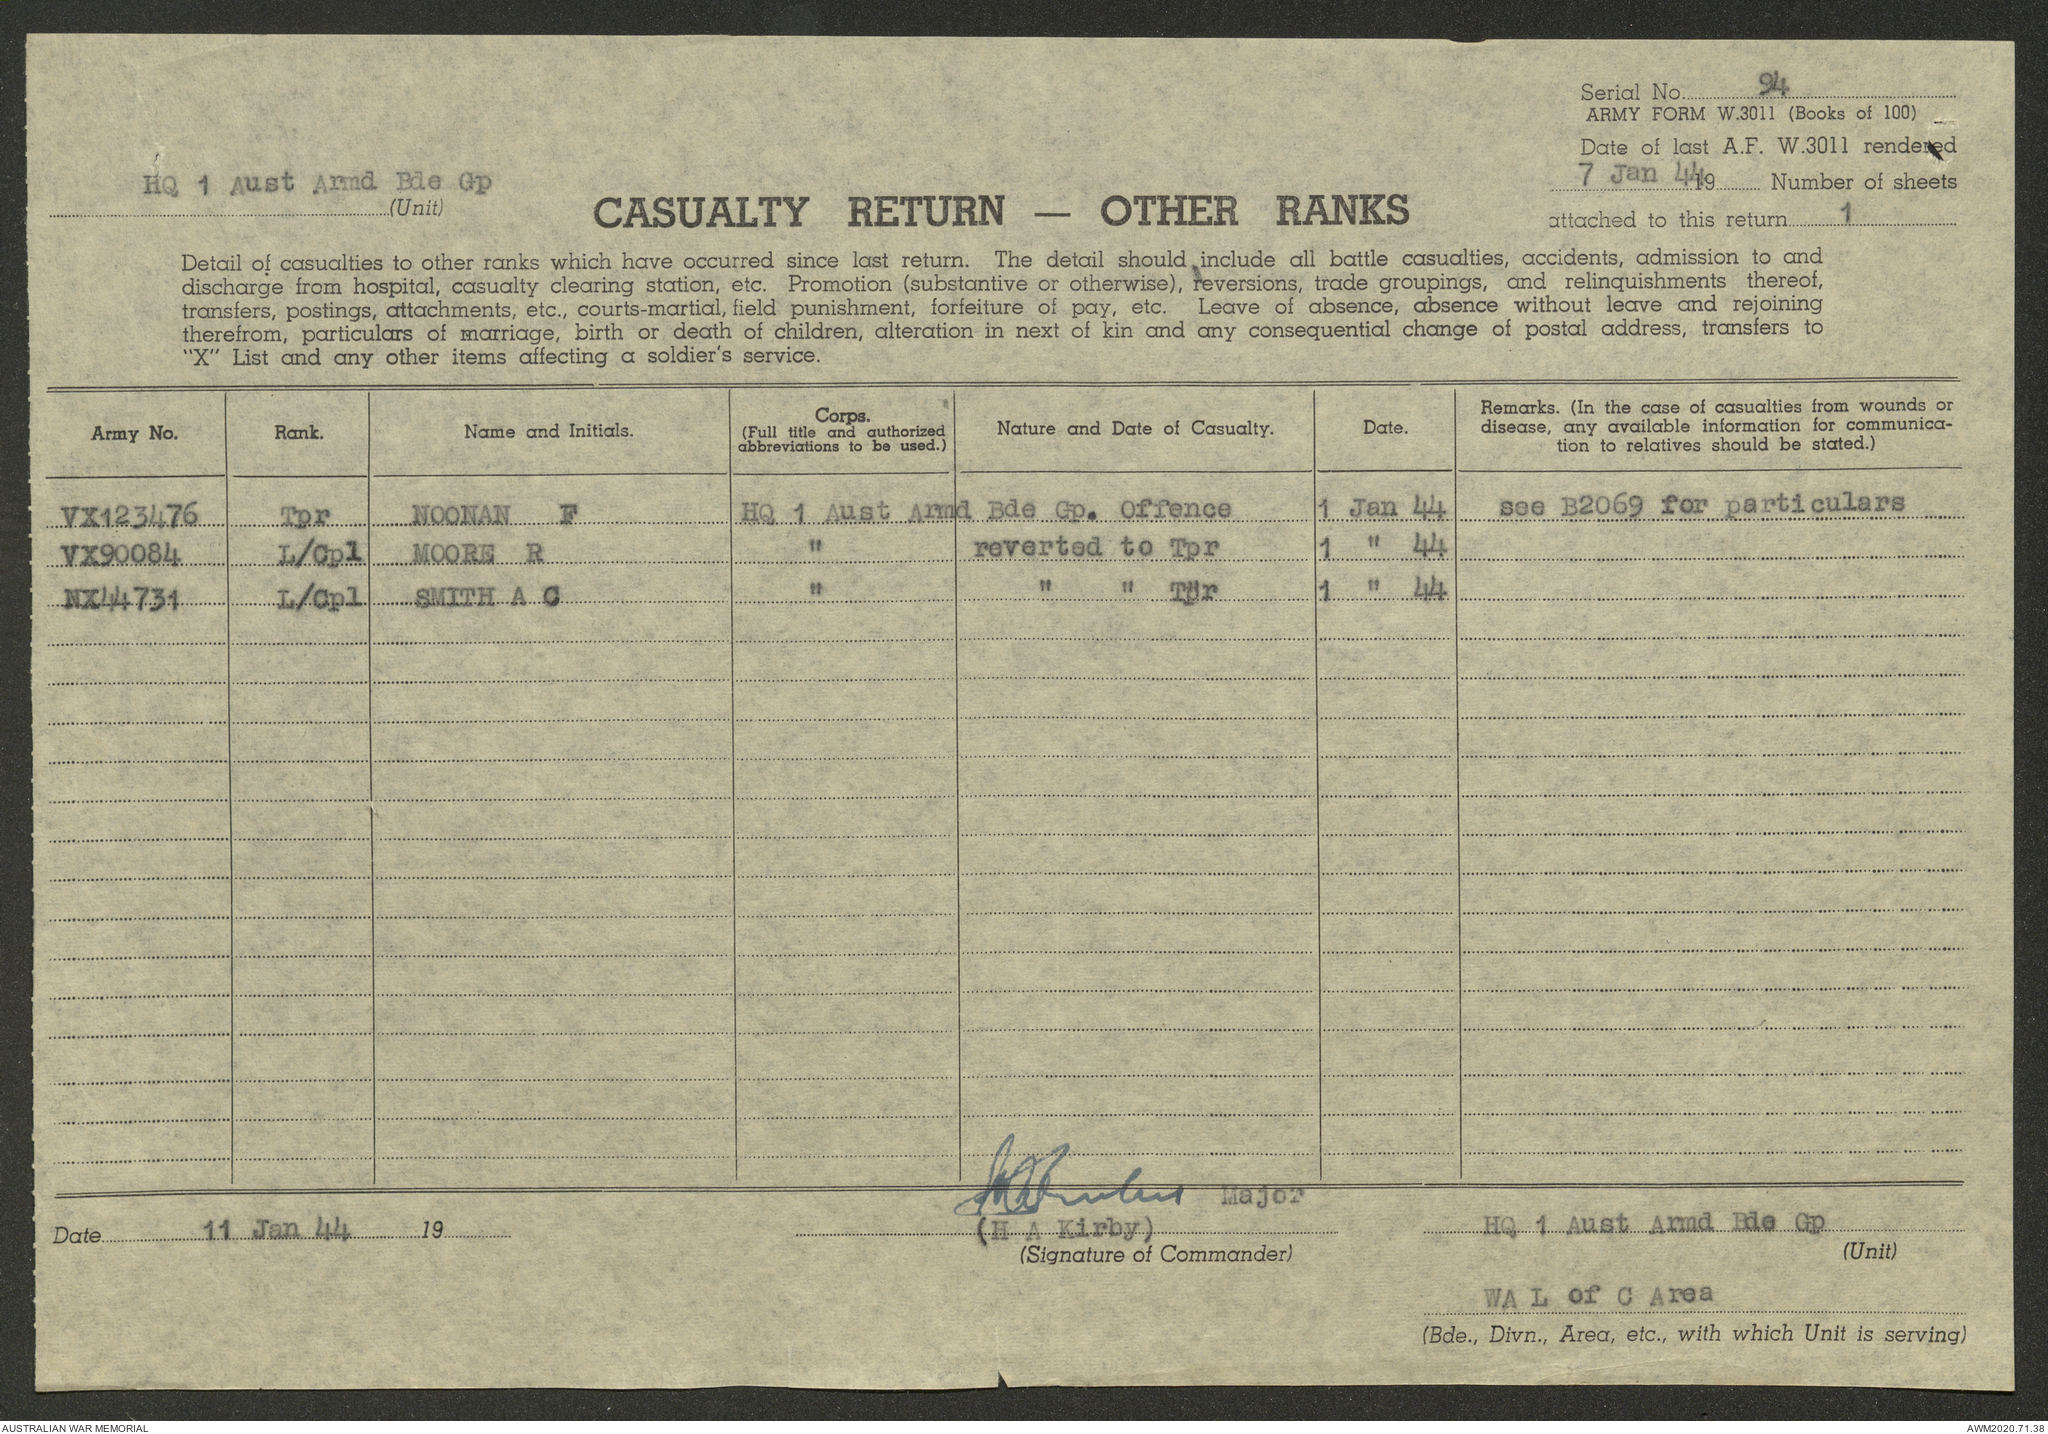 Serial No. 94
ARMY FORM W.3011 (Books of 100)
Date of last A.F. W.3011 rendered
7 Jan 44 19 Number of sheets
attached to this return 1
HQ 1 Aust Armd Bde Gp
(Unit)
CASUALTY RETURN — OTHER RANKS
Detail of casualties to other ranks which have occurred since last return. The detail should include all battle casualties, accidents, admission to and
discharge from hospital, casualty clearing station, etc. Promotion (substantive or otherwise), reversions, trade groupings, and relinquishments thereof,
transfers, postings, attachments, etc., courts-martial, field punishment, forfeiture of pay, etc. Leave of absence, absence without leave and rejoining
therefrom, particulars of marriage, birth or death of children, alteration in next of kin and any consequential change of postal address, transfers to
"X" List and any other items affecting a soldier's service.
Army No.
Rank.
Name and Initials.
Corps.
(Full title and authorized
abbreviations to be used.)
Nature and Date of Casualty.
Date.
Remarks. (In the case of casualties from wounds or
disease, any available information for communica-
tion to relatives should be stated.)
VX123476 Tpr NOONAN F HQ 1 Aust Armd Bde Gp. Offence 1 Jan 44 see B2069 for particulars
VX90084 L/Cpl MOORE R " reverted to Tpr 1 " 44
NX44731 L/Cpl SMITH A C " " " Tpr 1 " 44
Major
Date 11 Jan 44 19
(H A Kirby)
(Signature of Commander)
HQ 1 Aust Armd Bde Gp
(Unit)
WA L of C Area
(Bde., Divn., Area, etc., with which Unit is serving)
AUSTRALIAN WAR MEMORIAL
AWM2020.71.38